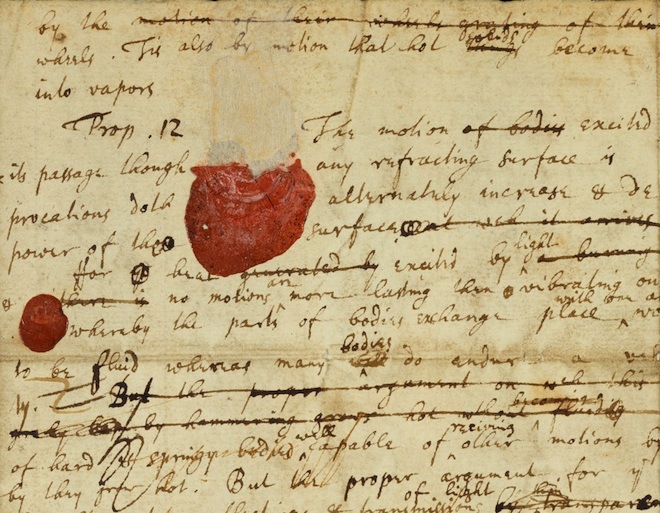 by the motion of their wheels grating of their
wheels. Tis also by motion that hot solids become
into vapors
Prop. 12 The motion of bodies excited
its passage though any refracting surface is
procations doth alternately increase & de
power of the surface at wch it arrives
For heat generated by excited by light a burning
& there is no motions are more lasting then vibrating on
whereby the parts of bodies exchange place with one an
to be fluid whereas many bodies do endure a
ly. But the proper argument on wch this
by hammering grows hot without becoming fluid
of hard & springy bodies well capable of receiving other motions b
by they grow hot. But the proper argument for ye
of light & transmissions by transparen